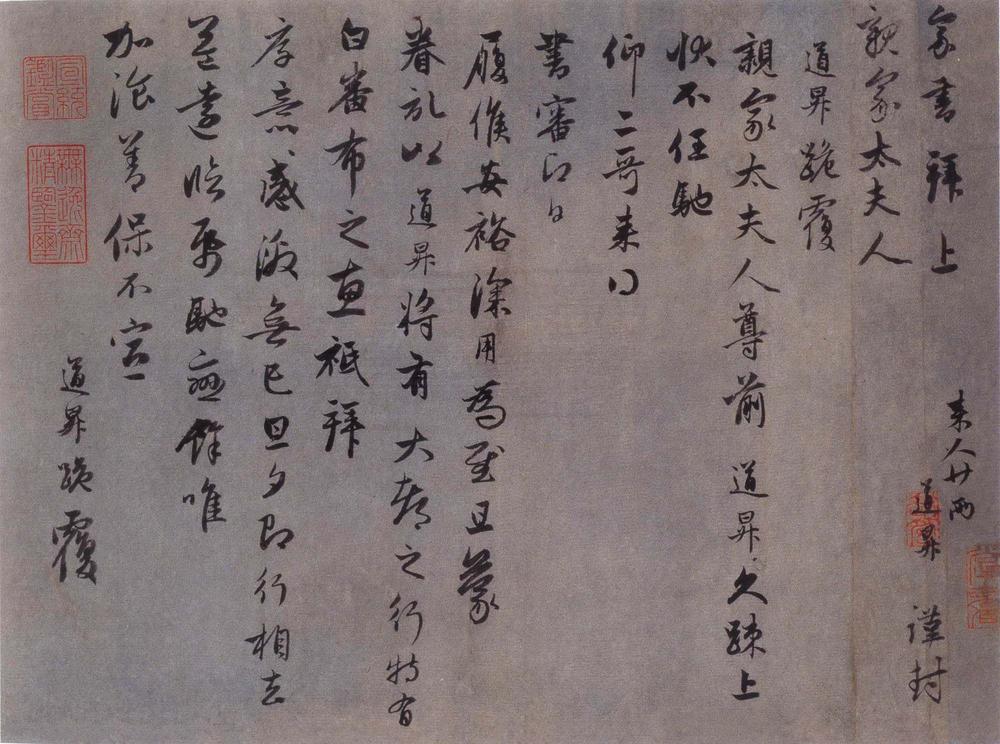 家書拜上
親家太夫人
來人廿兩
道昇 謹封
道昇跪覆
親家太夫人尊前 道昇久疎上
狀不任馳
仰二哥來
書審即日
履候安裕深用為慰且蒙
眷記以道昇將有大都之行特有
白番布之惠祗拜
厚意感激無已旦夕即行相去
益遠臨紙馳戀餘唯
加飡善保不宣
道昇跪覆
宣統鑑賞
無逸齋精鑒璽